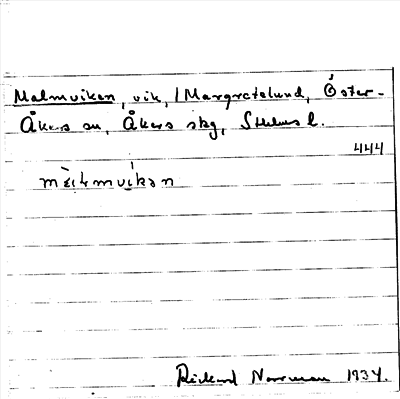 Malmviken, vik, /Margretelund, Öster-
Åkers sn, Åkers skg, Sthlms l.
444
Rickard Norrman 1934.